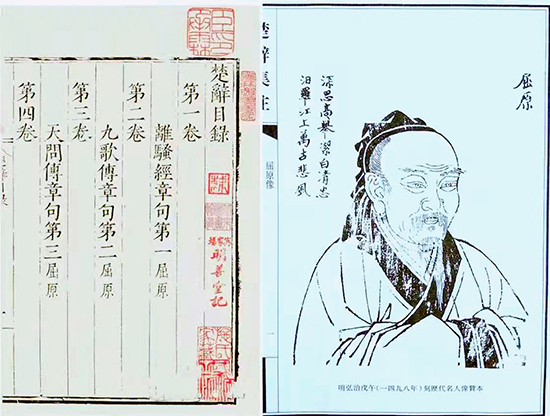 楚辭目錄
第一卷
離騷經章句第一 屈原
第二卷
九歌傳章句第二 屈原
第三卷
天問傳章句第三 屈原
第四卷
明善堂記
屈原
深思高舉潔白清忠
汨羅江上萬古悲風
楚辭集注
屈原像
明弘治戊午(一四九八年)刻歷代名人像贊本